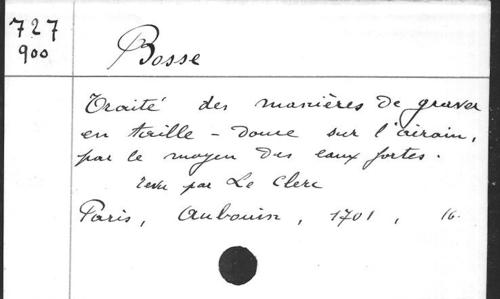 727
900
Bosse
Traité des manières de graver
en taille-douce sur l'airain,
par le moyen des eaux fortes.
revu par Le Clerc
Paris, Aubouin, 1701, 16.